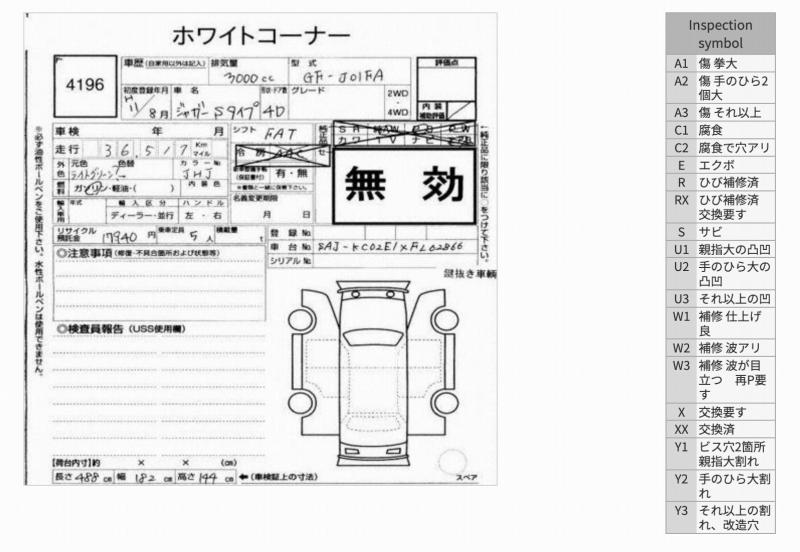 ホワイトコーナー
4196
車歴 (自家用以外は記入)
排気量
型式
評価点
3000cc
GF-J01FA
初度登録年月
車名
形状・ドア数
グレード
2WD
・
4WD
H 11/8月
ジャガー Sタイプ
4D
内装
補助評価
車検 年 月
シフト
FAT
走行
36,517
Km
マイル
冷房
AAC
SR 純AW PS PW
カワ TV ナビ エアB
外色
元色
色替
カラーNo
ライトグリーン
JHJ
内装色
燃料
ガソリン・軽油・( )
有・無
(保証書付)
※書類と一緒に保管下さい。
無効
輸入車用
年式
輸入区分
ハンドル
ディーラー・並行
左・右
名義変更期限
月 日
リサイクル預託金
17940円
乗車定員
5人
積載量
t
登録No
車台No
SAJ-KC02E1XFL62866
シリアルNo
※必ず油性ボールペンをご使用下さい。水性ボールペンは使用できません。
←純正品に限り該当に○をつけて下さい。
◎注意事項 (修復・不具合箇所および状態等)
鍵抜き車輌
◎検査員報告 (USS使用欄)
【荷台内寸】約 × × (cm)
長さ488cm 幅182cm 高さ144cm ←(車検証上の寸法)
スペア
Inspection symbol
A1 傷 拳大
A2 傷 手のひら2個大
A3 傷 それ以上
C1 腐食
C2 腐食で穴アリ
E エクボ
R ひび補修済
RX ひび補修済 交換要す
S サビ
U1 親指大の凸凹
U2 手のひら大の凸凹
U3 それ以上の凹
W1 補修 仕上げ良
W2 補修 波アリ
W3 補修 波が目立つ 再P要す
X 交換要す
XX 交換済
Y1 ビス穴2箇所 親指大割れ
Y2 手のひら大割れ
Y3 それ以上の割れ、改造穴